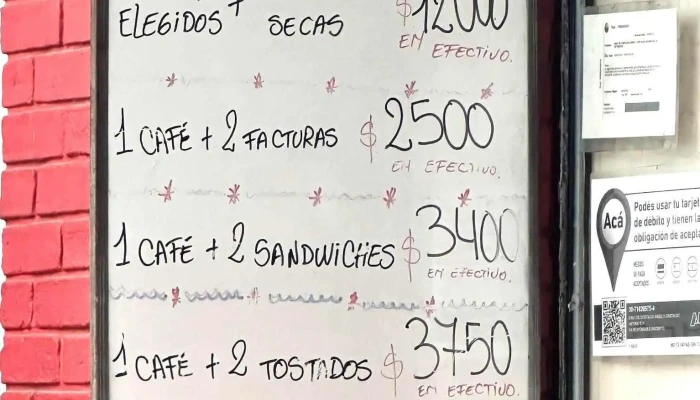 ELEGIDOS + SECAS $12000
EN EFECTIVO.
1 CAFÉ + 2 FACTURAS $2500
EN EFECTIVO.
1 CAFÉ + 2 SANDWICHES $3400
EN EFECTIVO.
1 CAFÉ + 2 TOSTADOS $3750
EN EFECTIVO.
Acá
Podés usar tu tarjet
de débito y tienen la
obligación de acepta
MEDIOS
DE PAGO
ACEPTADOS